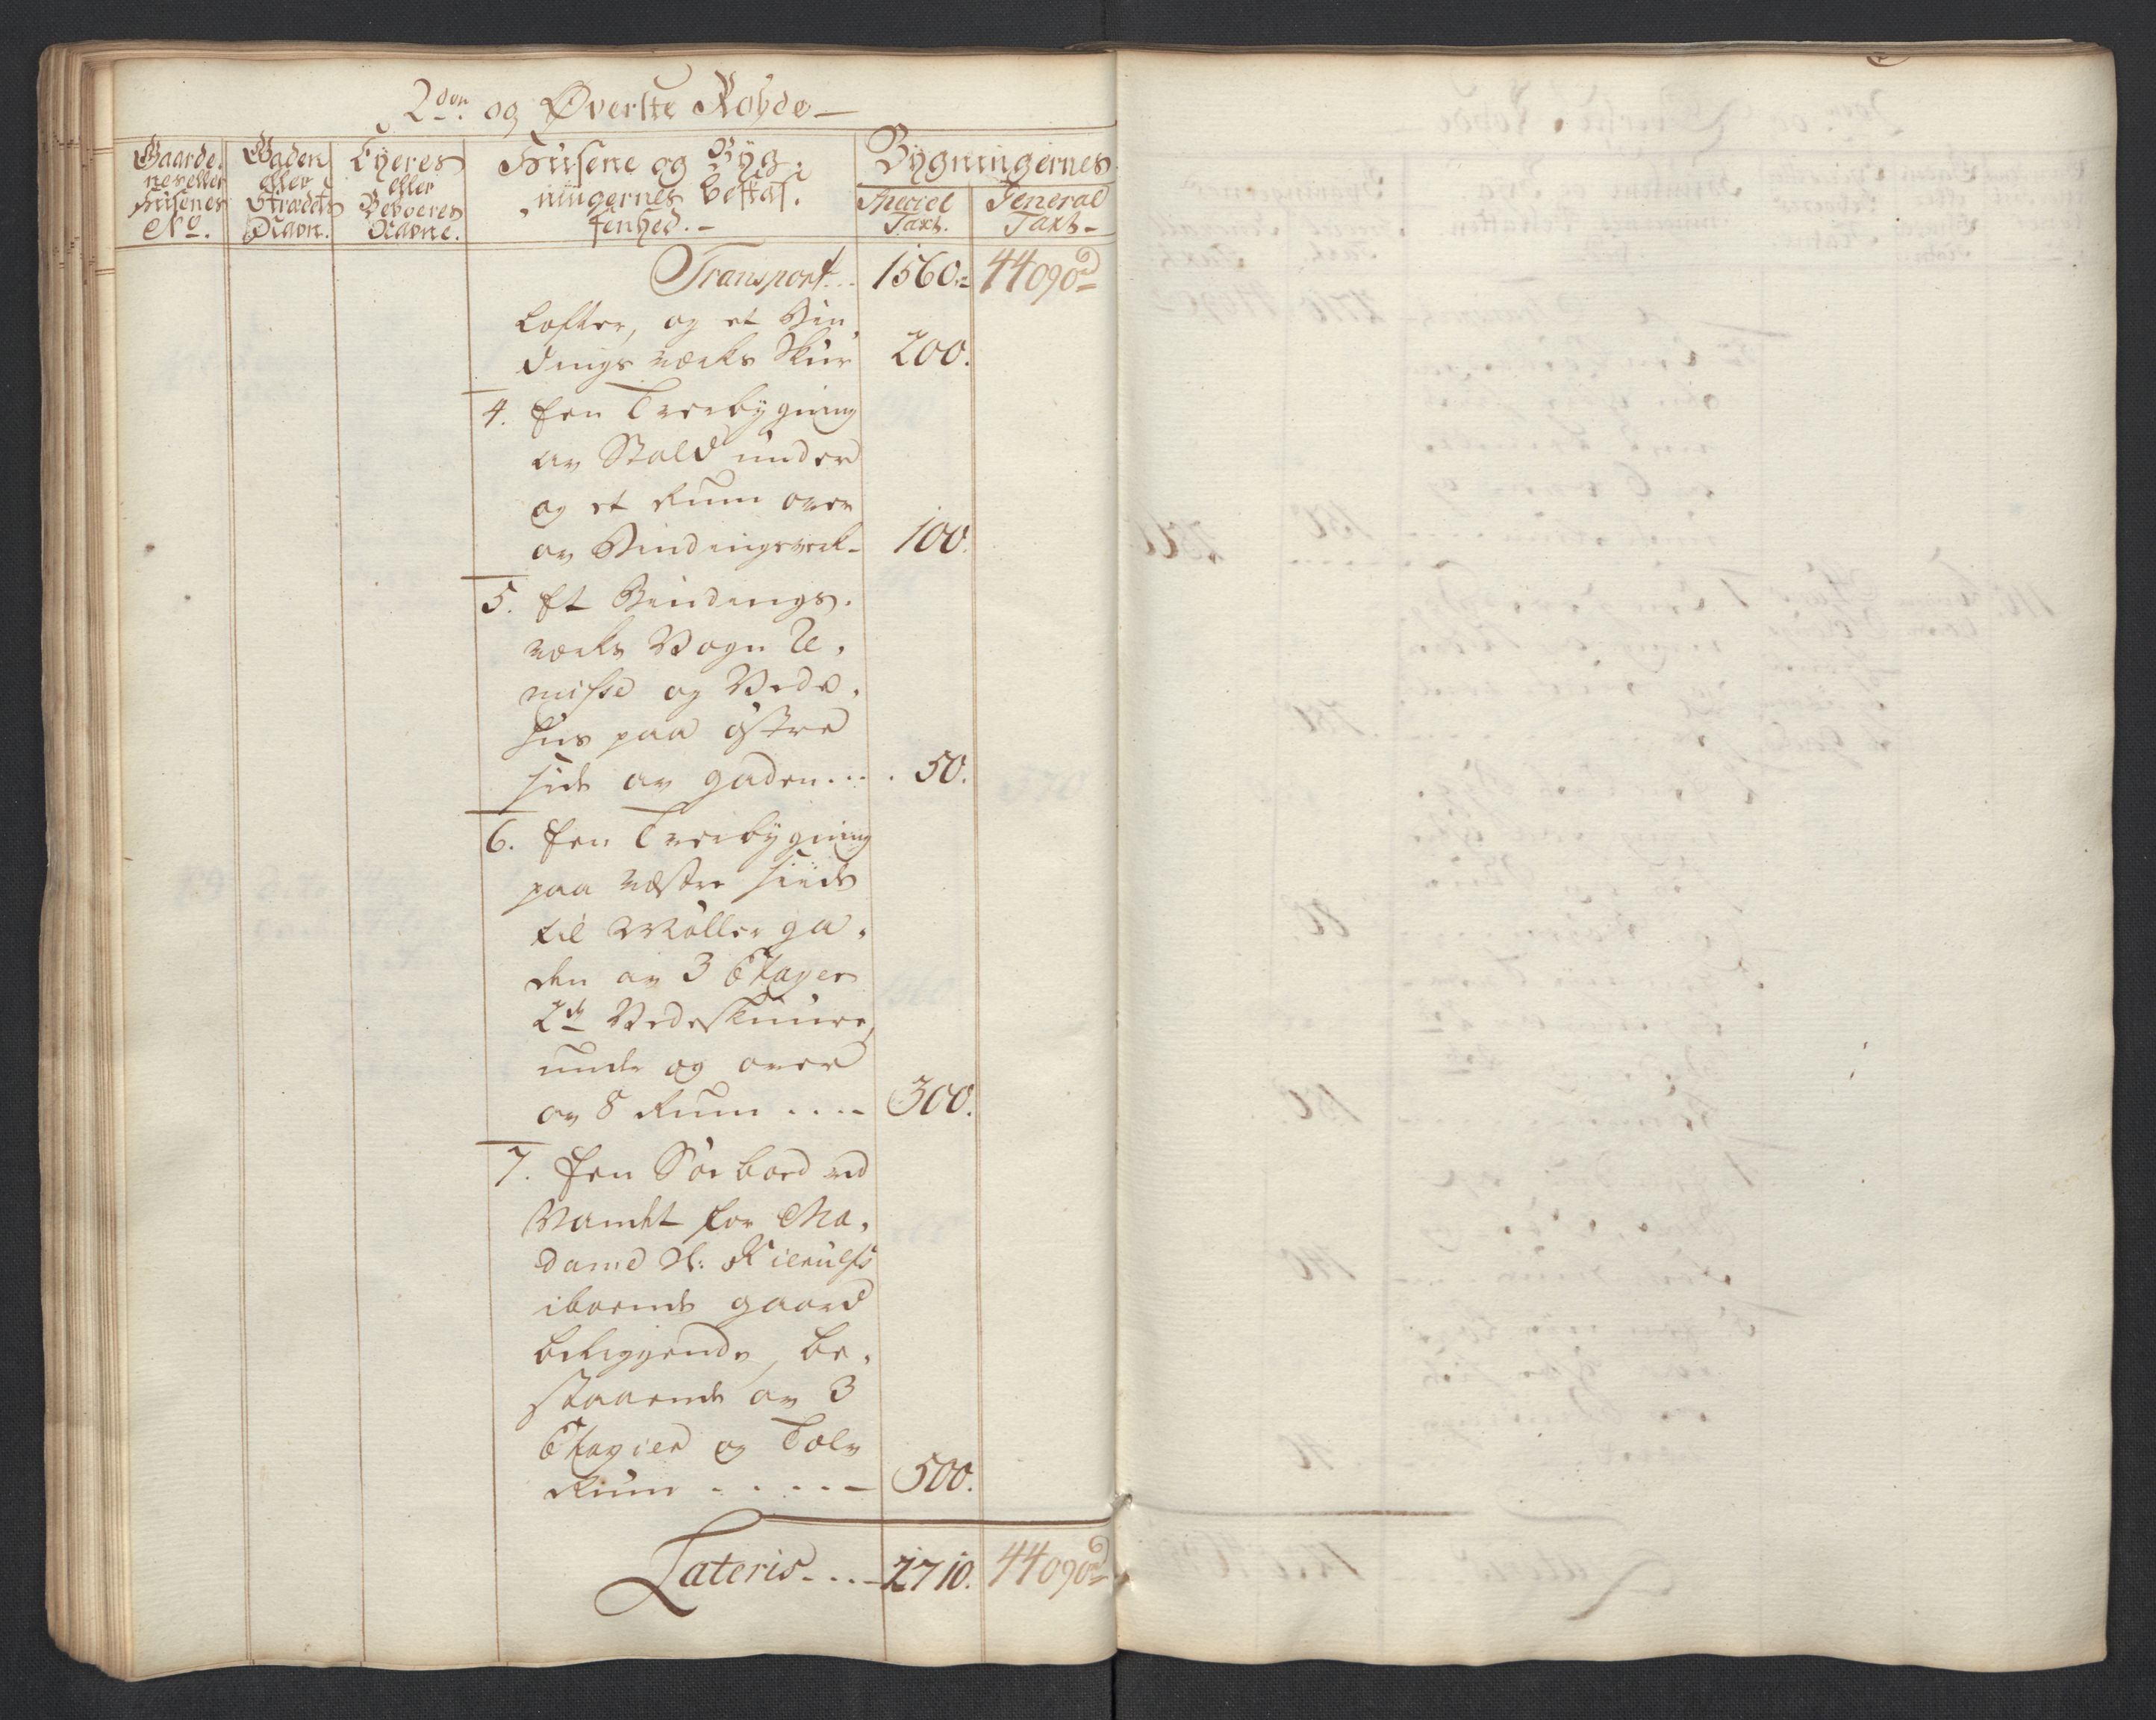 2den og Øverste Robde
Gaarde, nes eller Husenes No.
Gaden eller Strædets Navn.
Eyeres eller Beboeres Navne.
Husene og Byg, ningernes beskaf, fenhed.
Bygningernes
Special Taxt.
General Taxt
Transport... 1560. 44090
Lofter, og et Bin,
dings værks Skur 200.
4. Een Træebygning
av Stald under
og et Rum over
av Bindingsverk 100.
5. Et Bindings,
værks Vogn Re,
misse og Vede,
hus paa østre
side av gaden.... 50.
6. Een Træebygning
paa væstre siide
til Møller ga,
den av 3 Etager
2de Vedeskuure,
unde og over
av 8 Rum .... 300.
7. Een Søeboed ved
Vandet for Ma,
dame Sl: Kierulfs
iboende gaard
beliggende, be,
staaende av 3
Etagier og Tolv
Rum ..... 500.
Lateris.... 2710. 44090